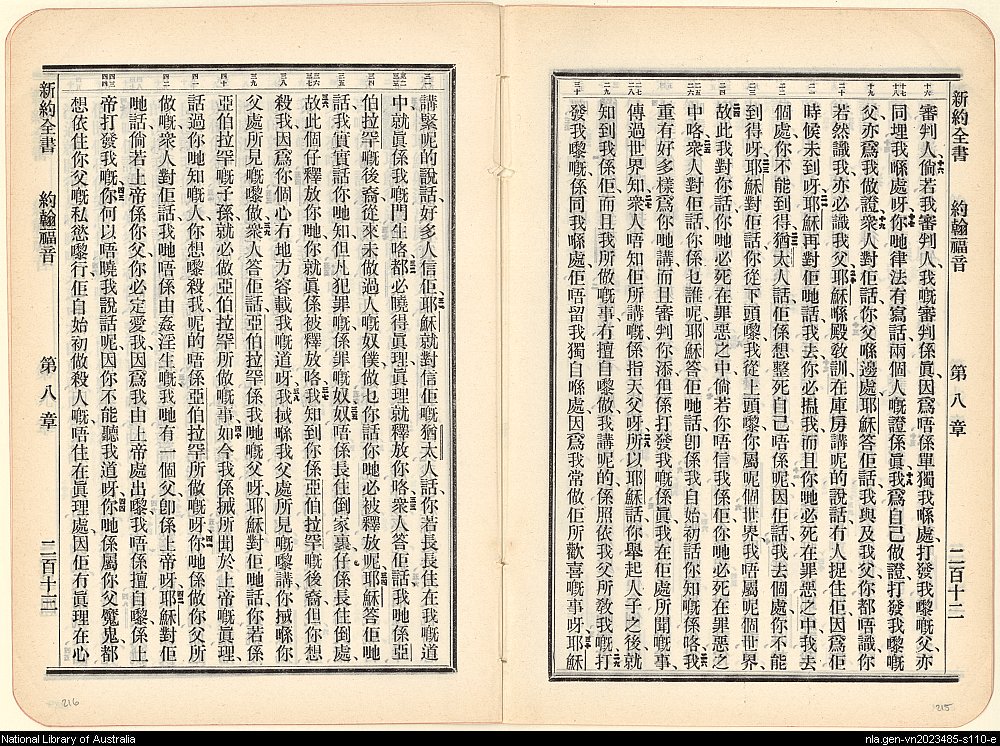 新約全書 約翰福音 第八章 二百十二
審判人、倘若我審判人、我嘅審判係眞、因爲唔係單獨我喺處、打發我嚟嘅父、亦
同埋我喺處呀、你哋律法有寫話、兩個人嘅證係眞、我爲自己做證、打發我嚟嘅
父、亦爲我做證、衆人對佢話、你父喺邊處、耶穌答佢話、我與及我父、你都唔識、你
若然識我、亦必識我父、耶穌喺殿敎訓、在庫房講呢的說話、冇人捉住佢、因爲佢
時候未到呀、耶穌再對佢哋話、我去、你必搵我、而且你哋必死在罪惡之中、我去
個處、你不能到得、猶太人話、佢係想整死自己唔係呢、因佢話、我去個處、你不能
到得呀、耶穌對佢話、你從下頭嚟、我從上頭嚟、你屬呢個世界、我唔屬呢個世界、
故此我對你話、你哋必死在罪惡之中、倘若你唔信我係佢、你哋必死在罪惡之
中咯、衆人對佢話、你係乜誰呢、耶穌答佢哋話、卽係我自始初話你知嘅係咯、我
重有好多樣爲你哋講、而且審判你添、但係打發我嘅係眞、我在佢處所聞嘅事、
傳過世界知、衆人唔知佢所講嘅、係指天父呀、所以耶穌話、你舉起人子之後、就
知到我係佢、而且我所做嘅事、冇擅自嚟做、我講呢的、係照依我父所敎我嘅、打
發我嚟嘅係同我喺處、佢唔留我獨自喺處、因爲我常做佢所歡喜嘅事呀、耶穌
新約全書 約翰福音 第八章 二百十三
講緊呢的說話、好多人信佢、耶穌就對信佢嘅猶太人話、你若長長住在我嘅道
中、就眞係我嘅門生咯、都必曉得眞理、眞理就釋放你咯、衆人答佢話、我哋係亞
伯拉罕嘅後裔、從來未做過人嘅奴僕、做乜你話你哋必被釋放呢、耶穌答佢哋
話、我實實話你哋知、但凡犯罪嘅、係罪嘅奴、奴唔係長住倒家裏、仔係長住倒處、
故此個仔釋放你哋、你就眞係被釋放咯、我知到你係亞伯拉罕嘅後裔、但你想
殺我、因爲你個心冇地方容載我嘅道呀、我搣喺我父處所見嘅嚟講、你搣喺你
父處所見嘅嚟做、衆人答佢話、亞伯拉罕係我哋嘅父呀、耶穌對佢哋話、你若係
亞伯拉罕嘅子孫、就必做亞伯拉罕所做嘅事、如今我係搣所聞於上帝嘅眞理、
話過你哋知嘅人、你想嚟殺我、呢的唔係亞伯拉罕所做嘅呀、你哋係做你父所
做嘅、衆人對佢話、我哋唔係由姦淫生嘅、我哋有一個父、卽係上帝呀、耶穌對佢
哋話、倘若上帝係你父、你必定愛我、因爲我由上帝處出嚟、我唔係擅自嚟、係上
帝打發我嘅、你何以唔曉我說話呢、因你不能聽我道呀、你哋係屬你父魔鬼、都
想依住你父嘅私慾嚟行、佢自始初做殺人嘅、唔住在眞理處、因佢冇眞理在心
216
215
National Library of Australia
nla.gen-vn2023485-s110-e